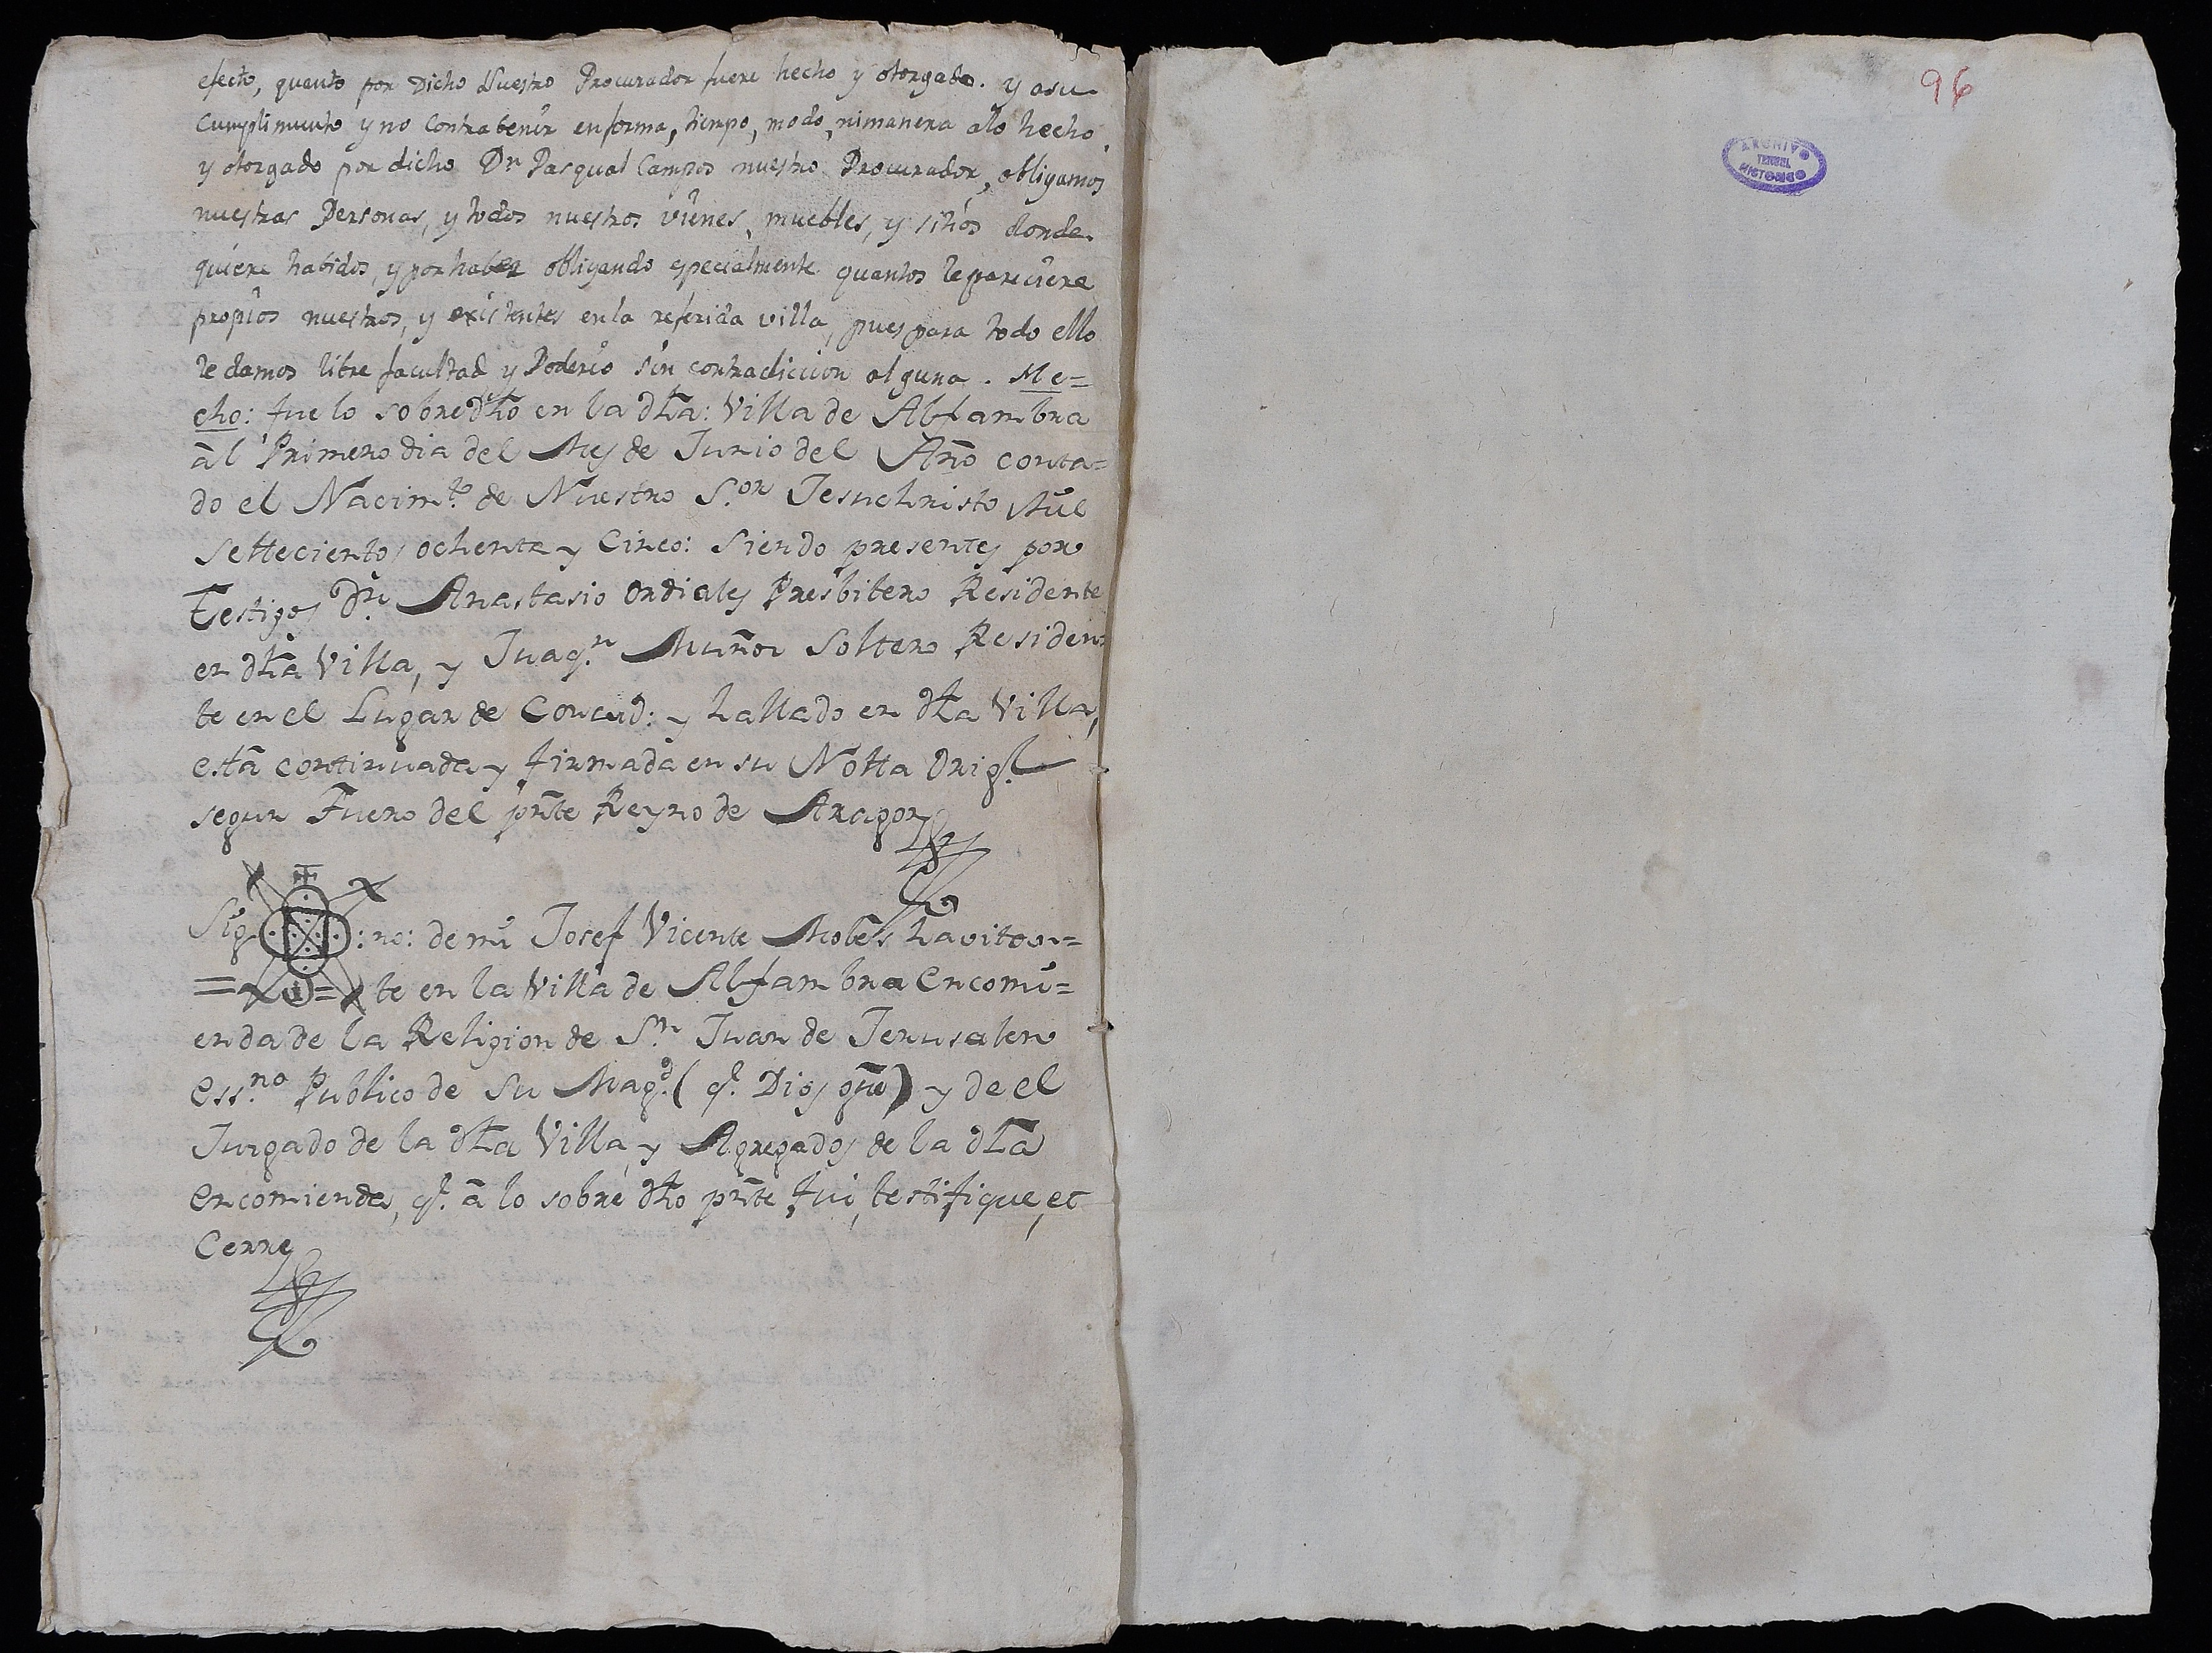 efecto, quanto por Dicho Nuestro Procurador fuere hecho y otorgado. y asu
Cumplimiento y no Contrabenir enforma, tiempo, modo, nimanera alo hecho
y otorgado por dicho Dn Pasqual Campos nuestro Procurador, obligamos
nuestras Personas, y todos nuestros vienes, muebles, y sitios donde
quiere habidos, y por haber obligando especialmente quantos le pareciere
propios nuestros, y existentes en la referida villa, pues para todo ello
le damos libre facultad y Poderio sin contradiccion alguna. He=
cho: fue lo sobredho en la dha: Villa de Alfambra
àl Primero dia del Mes de Junio del Año conta=
do el Nacimto de Nuestro S.or Jesuchristo Mil
Settecientos ochenta y Cinco: Siendo presentes por
Testigos Dn Anastasio Ordiales Presbitero Residente
en dha Villa, y Juaqn Muñoz Soltero Residen=
te en el Lugar de Concud: y hallado en dha Villa,
està continuada y firmada en su Notta Origl
segun Fuero del prñte Reyno de Aragon
Sig :no: de mi Josef Vicente havitan=
te en la Villa de Alfambra Encomi=
enda de la Religion de Sn Juan de Jerusalen
Ess.no Publico de Su Magd (q. Dios gue) y de el
Juzgado de la dha Villa, y Agregados de la dha
Encomienda, q. à lo sobre dho prñte fui, testifique, et
Cerre
96
ARCHIVO
TERUEL
HISTORICO